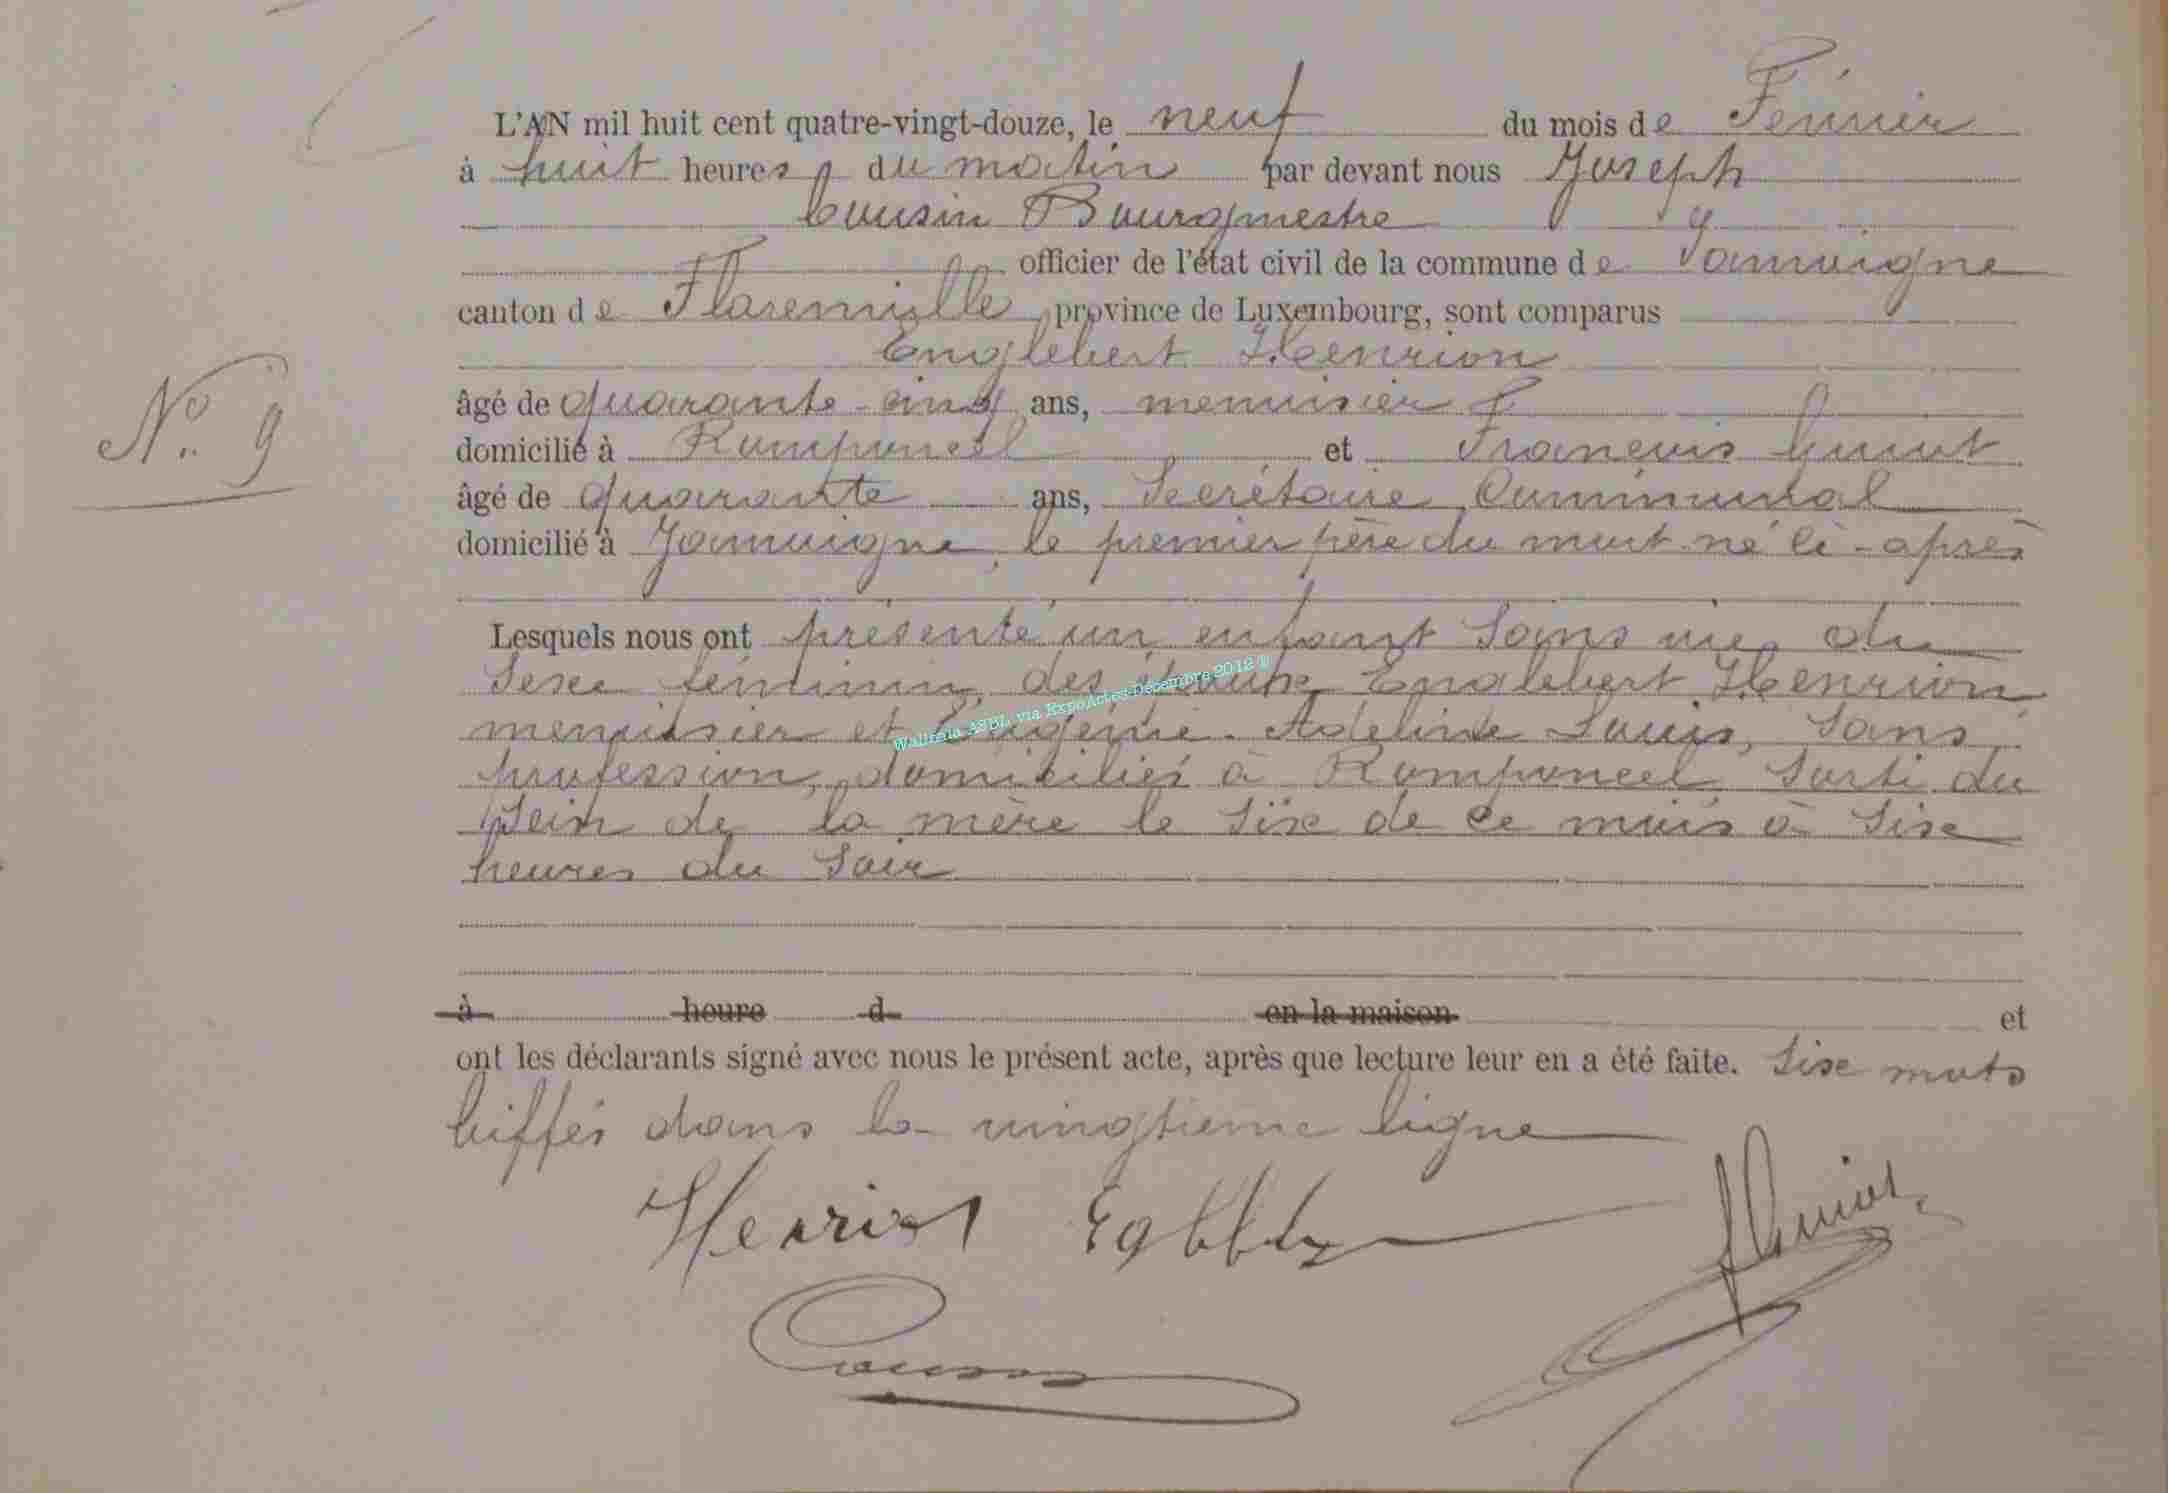 L'AN mil huit cent quatre-vingt-douze, le neuf du mois de Février
à huit heures du matin par devant nous Joseph
Cousin Bourgmestre
officier de l'état civil de la commune de Jamoigne
canton de Florenville province de Luxembourg, sont comparus
Englebert Henrion
âgé de quarante-cinq ans, menuisier
domicilié à Romponcel et François
N° 9
âgé de quarante ans, Secrétaire Communal
domicilié à Jamoigne, le premier père du mort-né ci-après
Lesquels nous ont présenté un enfant sans vie, du
Sexe féminin, des époux Englebert Henrion
menuisier et Eugénie-Adeline Louis, sans
profession, domiciliés à Romponcel, sorti du
sein de la mère le six de ce mois à six
heures du soir
à heure d en la maison et
ont les déclarants signé avec nous le présent acte, après que lecture leur en a été faite. Six mots
biffés dans la vingtième ligne
Henrion
Cousin
Wallonia ASBL via ExpoActes-Décembre 2012 ©